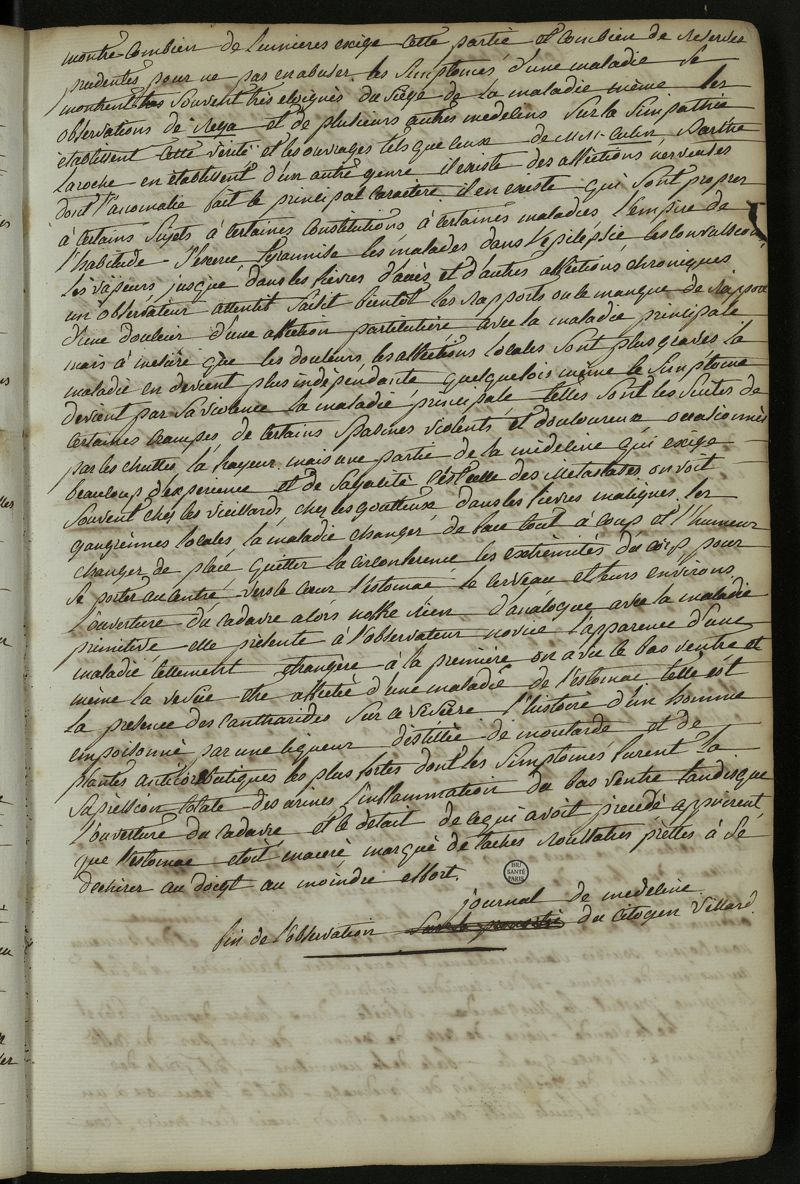 montre combien de lumieres exige cette partie et combien de reserves
prudentes pour ne pas en abuser. les simptomes d'une maladie se
montrent souvent très eloignés du siège de la maladie même les
observations de Rega et de plusieurs autres medecins sur la simpathie
etablissent cette verité et les ouvrages tels que ceux de Mrs Barthe
Laroche en etablissent d'un autre genre. il existe des affections nerveuses
dont l'anomalie fait le principal caractere il en existe qui sont propres
à certains sujets à certaines constitutions à certaines maladies l'empire de
l'habitude exerce tyrannise les malades dans l'epilepsie les convulsions
les vapeurs jusque dans les fievres d'accès et d'autres affections chroniques
un observateur attentif saisit bientôt les rapports ou le manque de rapport
d'une douleur d'une affection particuliere avec la maladie principale
mais à mesure que les douleurs, les affections locales sont plus graves la
maladie en devient plus indépendante quelquefois même le simptome
devient par sa violence la maladie principale telles sont les suites de
certaines crampes de certains spasmes violents et douloureux occasionnés
par les chuttes, la frayeur. mais une partie de la médecine qui exige
beaucoup d'experience et de sagacité c'est celle des metastases on voit
souvent chez les vieillards, chez les goutteux, dans les fievres malignes, les
gangrènnes locales la maladie changer de face tout à coup et l'humeur
changer de place quitter la circonference, les extrémités du corps pour
se porter au centre vers le cœur l'estomac le cerveau et leurs environs
l'ouverture du cadavre alors n'offre rien d'analogue avec la maladie
primitive elle présente à l'observateur novice l'apparence d'une
maladie tellement étrangère à la première on a vu le bas ventre et
même la vessie être affectée d'une maladie de l'estomac. telle est
la presence des cantharides sur ce viscère l'histoire d'un homme
empoisonné par une liqueur distillée de moutarde et de
plantes anticorbutiques les plus fortes dont les simptomes furent la
supression totale des urines l'inflammation du bas ventre tandis que
l'ouverture du cadavre et le detail de ce qui avoit precedé apprirent
que l'estomac etoit maceré marqué de taches roussatres prettes à se
dechirer au doigt au moindre effort.
BIU SANTÉ PARIS
journal de medecine.
fin de l'observation du citoyen Villard.